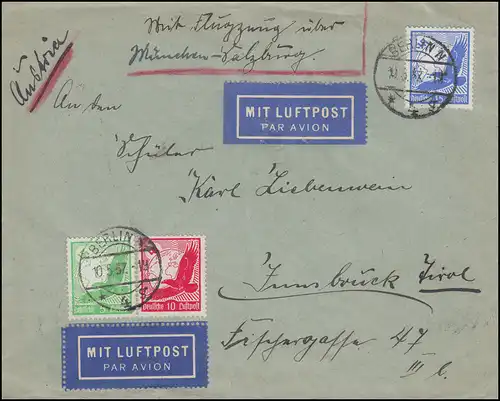 Mit Flugzeug über
München-Salzburg.
Austria
An den
MIT LUFTPOST
PAR AVION
BERLIN N
4
Schüler
Karl Liebenwein
BERLIN N
10.5.37
4
Deutsche Luftpost
10
Innsbruck Tirol
Fischergasse 47
III b.
MIT LUFTPOST
PAR AVION